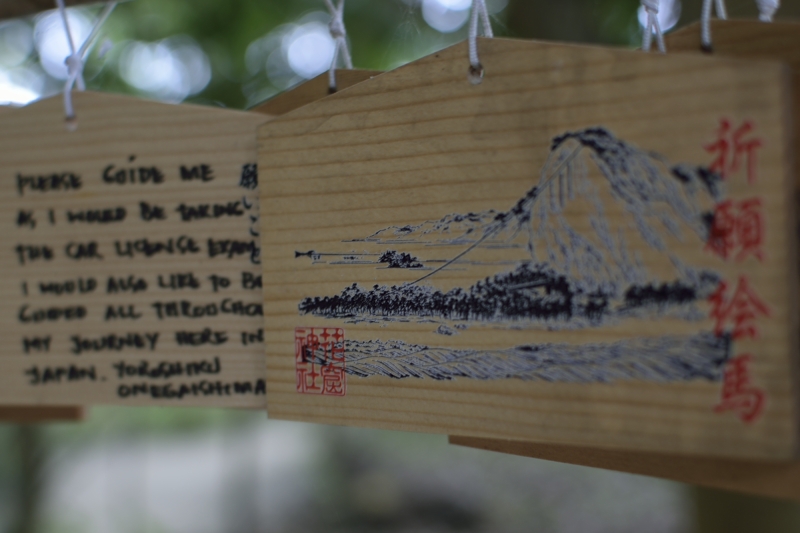 PLEASE GUIDE ME
AS I WOULD BE TAKING
THE CAR LICENSE EXAM
I WOULD ALSO LIKE TO BE
GUIDED ALL THROUGHOU
MY JOURNEY HERE IN
JAPAN. YOROSHIKU
ONEGAISHIMA
願
祈願絵馬
神社